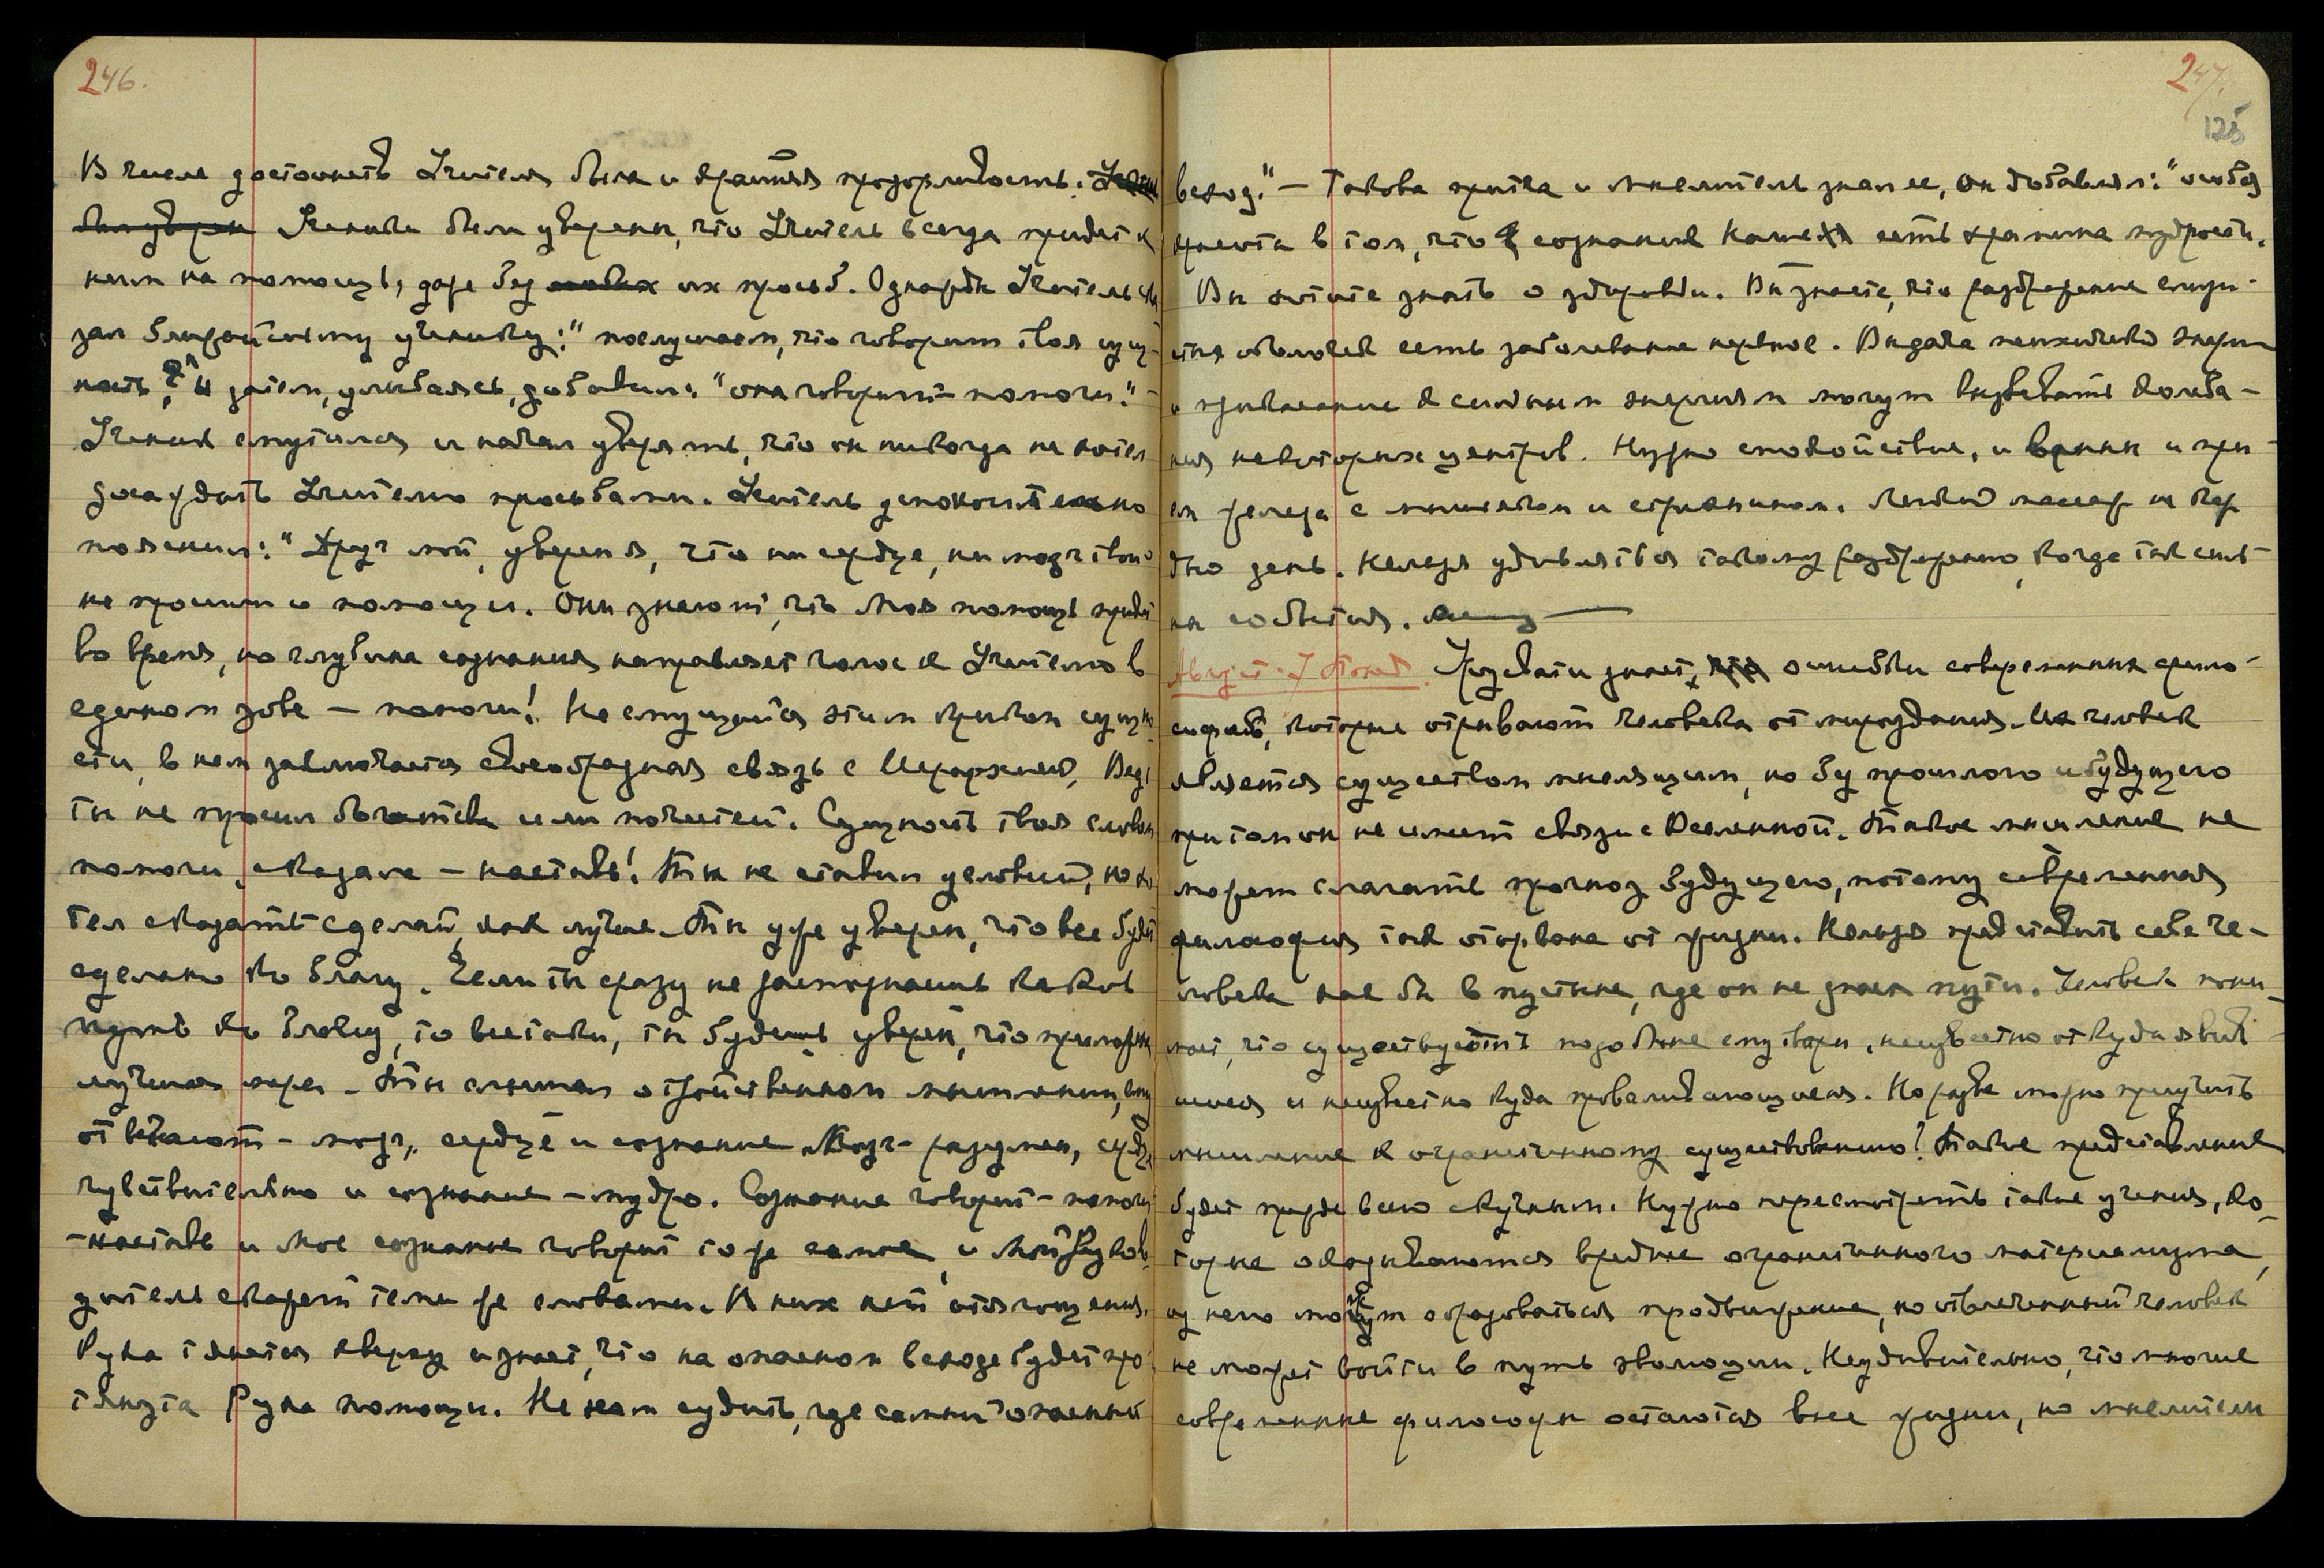 246.
В числе достоинств Учителя была и крайняя прозорливость.
Ученики были уверены, что Учитель всегда придет к
ним на помощь, даже без их просьб. Однажды Учитель ска
зал ближайшему ученику: "послушаем, что говорит твоя сущ-
ность?" и затем, улыбаясь, добавил: "она говорит - помоги." -
Ученик смутился и начал уверять, что он никогда не хотел
досаждать Учителю просьбами. Учитель успокоительно
пояснил: "Друг мой, уверен я, что ни сердце, ни мозг твой
не просили о помощи. Они знают, что Моя помощь придет
во время, но глубина сознания направляет голос к Учителю в
едином зове — помоги! Не смущайся этим криком сущно
сти, в нем заключается своеобразная связь с Иерархией. Ведь
ты не просил богатства или почестей. Сущность твоя словом
помоги, сказала — наставь! Ты не ставил условий, но хо
тел сказать сделай, как лучше. Ты уже уверен, что все будет
сделано ко благу. Если ты сразу не распознаешь каков
путь ко благу, то всетаки, ты будешь уверен, что приложена
лучшая мера. Ты слышал о тройственном мышлении, ему
отвечают - мозг, сердце и сознание. Мозг - разумен, сердце
чувствительно и сознание - мудро. Сознание говорит - помоги
- наставь и Мое сознание говорит то же самое, и Мой Руково
дитель скажет теми же словами. В них нет отягощения.
Рука тянется кверху и знает, что на опасном всходе будет про
тянута Рука помощи. Не нам судить, где самый опасный
247.
125
всход." — Такова притча и мыслитель знал ее, он добавлял: "особая
красота в том, что сознание наше есть хранина мудрости.
Вы хотите знать о здоровьи. Вы знаете, что раздражение слизи-
стых оболочек есть заболевание нервное. Выдача психической энергии
и привлечение к сильным энергиям могут вызывать колеба-
ния некоторых центров. Нужно спокойствие, и ванны и при-
ем железа с мышьяком и стрихнином. Легкий массаж не каж
дый день. Нельзя удивляться такому раздражению, когда так силь-
ны события.
Август. 7 Урусвати знает, ошибки современных фило-
софов, которые отрывают человека от мироздания. Их человек
является существом мыслящим, но без прошлого и будущего
при том он не имеет связи с Вселенной. Такое мышление не
может слагать прогноз будущего, потому современная
философия так оторвана от жизни. Нельзя представить себе че-
ловека как бы в пустыне, где он не знает пути. Человек пони-
мает, что существуют подобные ему твари, неизвестно откуда явив
шиеся и неизвестно куда проваливающиеся. Но разве можно приучить
мышление к ограниченному существованию? Такое представление
будет прежде всего скучным. Нужно пересмотреть такие учения, ко-
торые оказываются вреднее ограниченного материализма,
из него могут образоваться продвижение, но отвлеченный человек
не может войти в путь эволюции. Неудивительно, что многие
современные философы остаются вне жизни, но мыслители